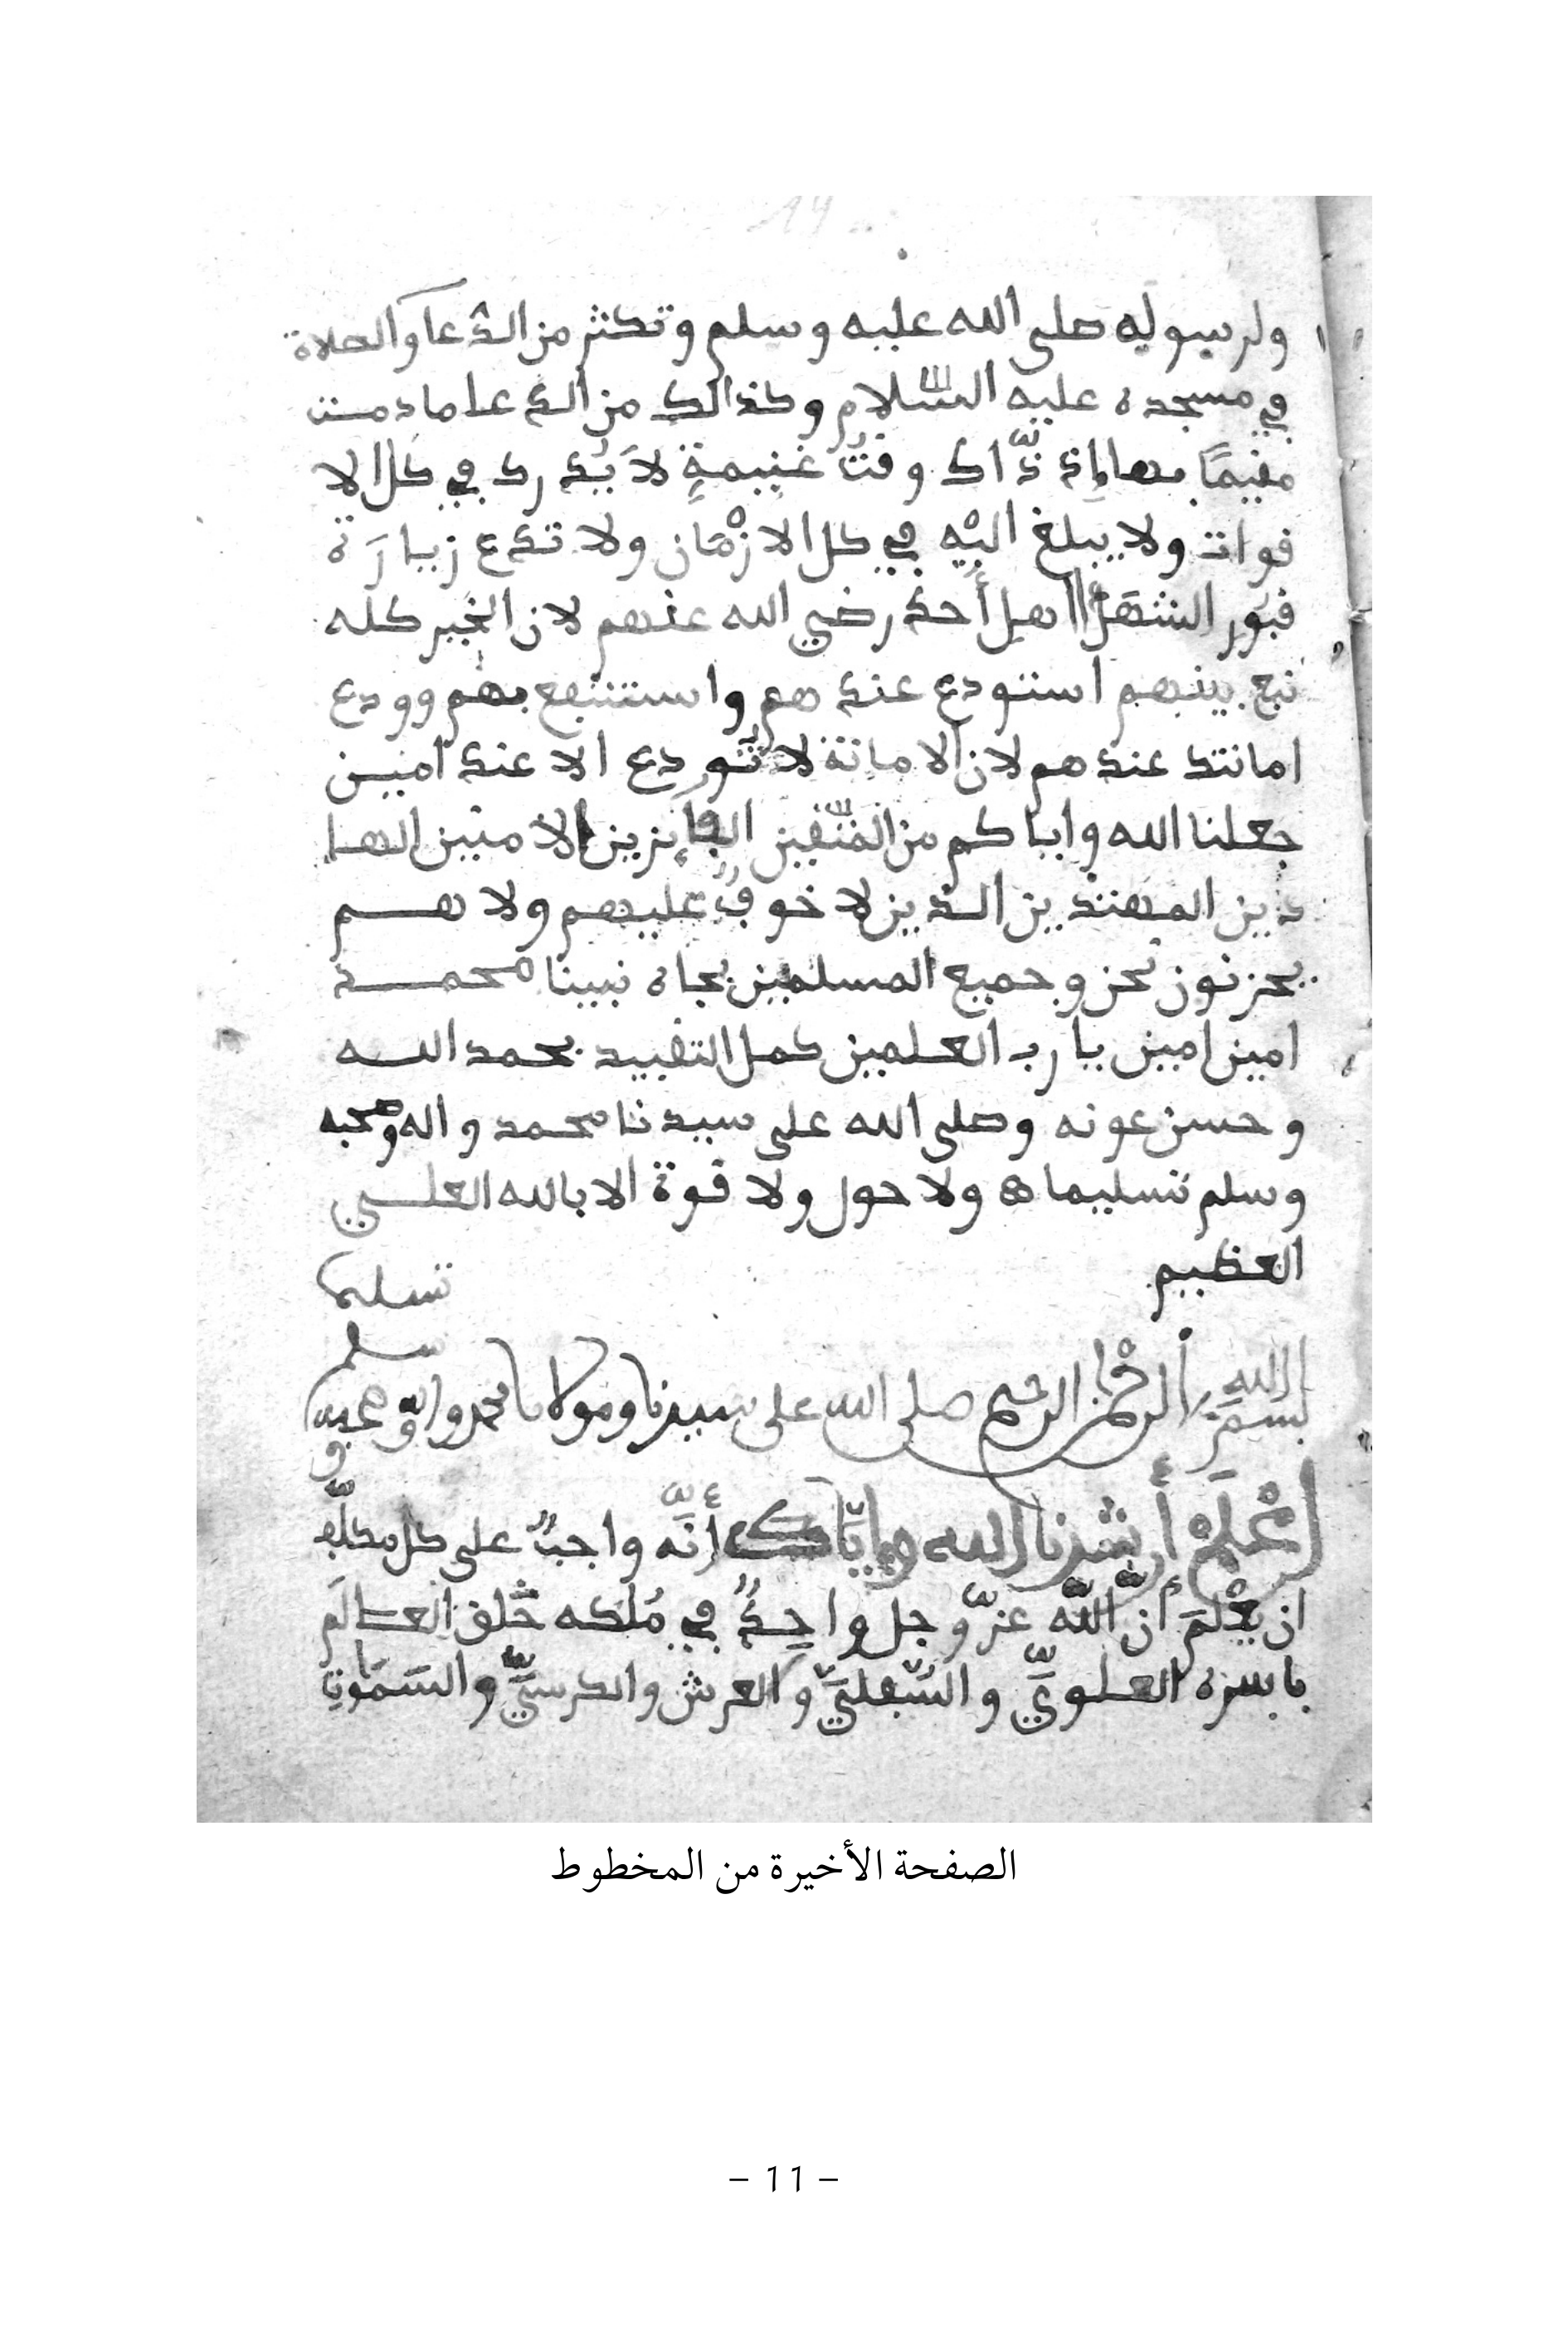 ولرسوله صلى الله عليه وسلم وتكثر من الدعا والصلاة
في مسجده عليه السلام وكذالك من الدعا ما دمت
مقيمًا بها إذ ذّاك وقتُ غنيمةٍ لا يُدرك في كل الا
قوات ولا يبلغ اليْه في كل الازْمان ولا تدع زيارَة
قبور الشهدا اهل أحد رضي الله عنهم لان الخير كله
نبع بينهم استودع عندهم واستنفع بهم وودع
امانتك عندهم لان الامانة لا تُودع الا عند امين
جعلنا الله واياكم من المتّقين الفايزين الامنين الها
دين المهتدين الذين لا خوفٌ عليهم ولا هم
يحزنون نحن وجميع المسلمين بجاه نبينا محمد
امين امين يا رب العلمين كمل التقييد بحمد الله
وحسن عونه وصلى الله على سيدنا محمد واله وصحبه
وسلم تسليما ه ولا حول ولا قوة الا بالله العلي
العظيم
بسم الله الرحمن الرحيم صلى الله على سيدنا ومولانا محمد واله وصحبه وسلم تسليما
اعْلمْ أرشدنا الله وإيّاك أنَّه واجبٌ على كل مكلّف
ان يعْلمَ أنّ اللّه عزّ وجل واحِدٌ في مُلكه خَلق العالَم
باسره العلويَّ والسّفليَّ والعرش والكرسيَّ والسَّمَوٰتِ
الصفحة الأخيرة من المخطوط
– 11 –